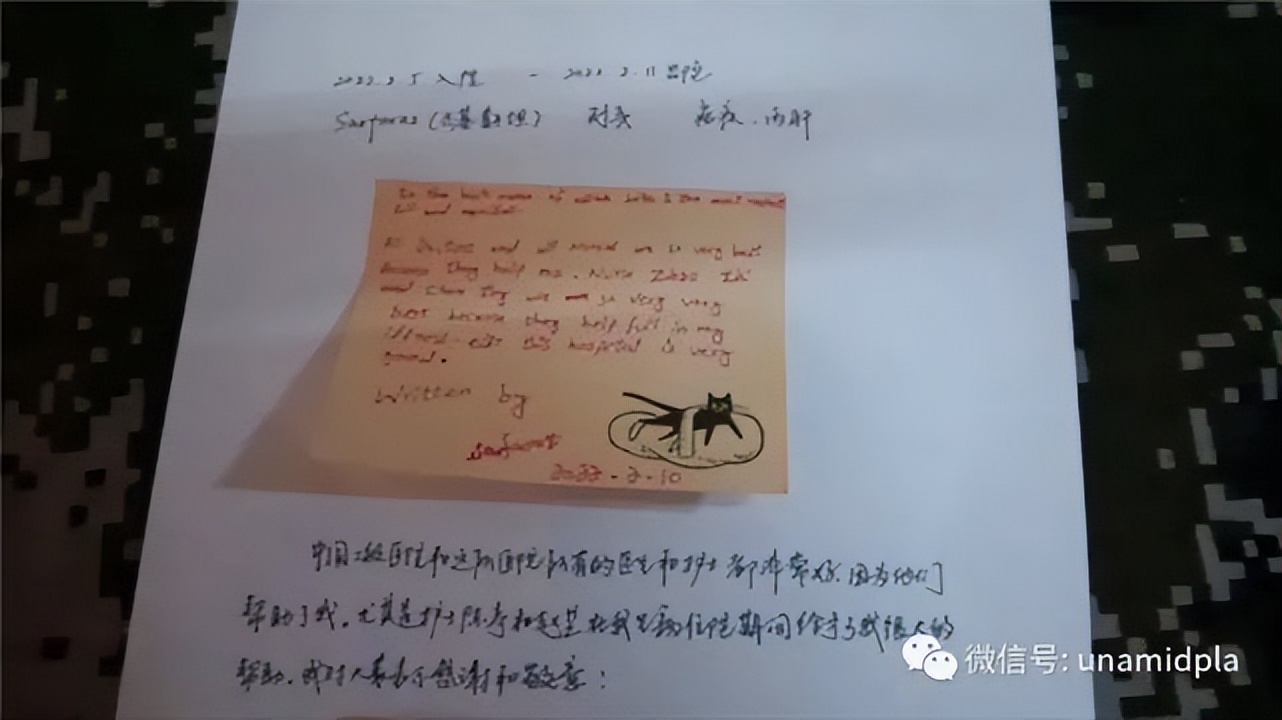 2022.2.5 入院 - 2022.2.11 出院
Sarfaraz (巴基斯坦) 疟疾.丙肝
and
All Doctors and all are so very best
Because they help me. Nurse Zhao
and Chen Ting are so very very
best because they help full in my
illness this hospital is very
good.
Written by
Sarfaraz
2022-2-10
中国二级医院和这所医院所有的医生和护士都非常好.因为他们
帮助了我.尤其是护士陈亭和赵 在我 住院期间给予了我很大的
帮助.我对 表示感谢和敬意!
微信号: unamidpla